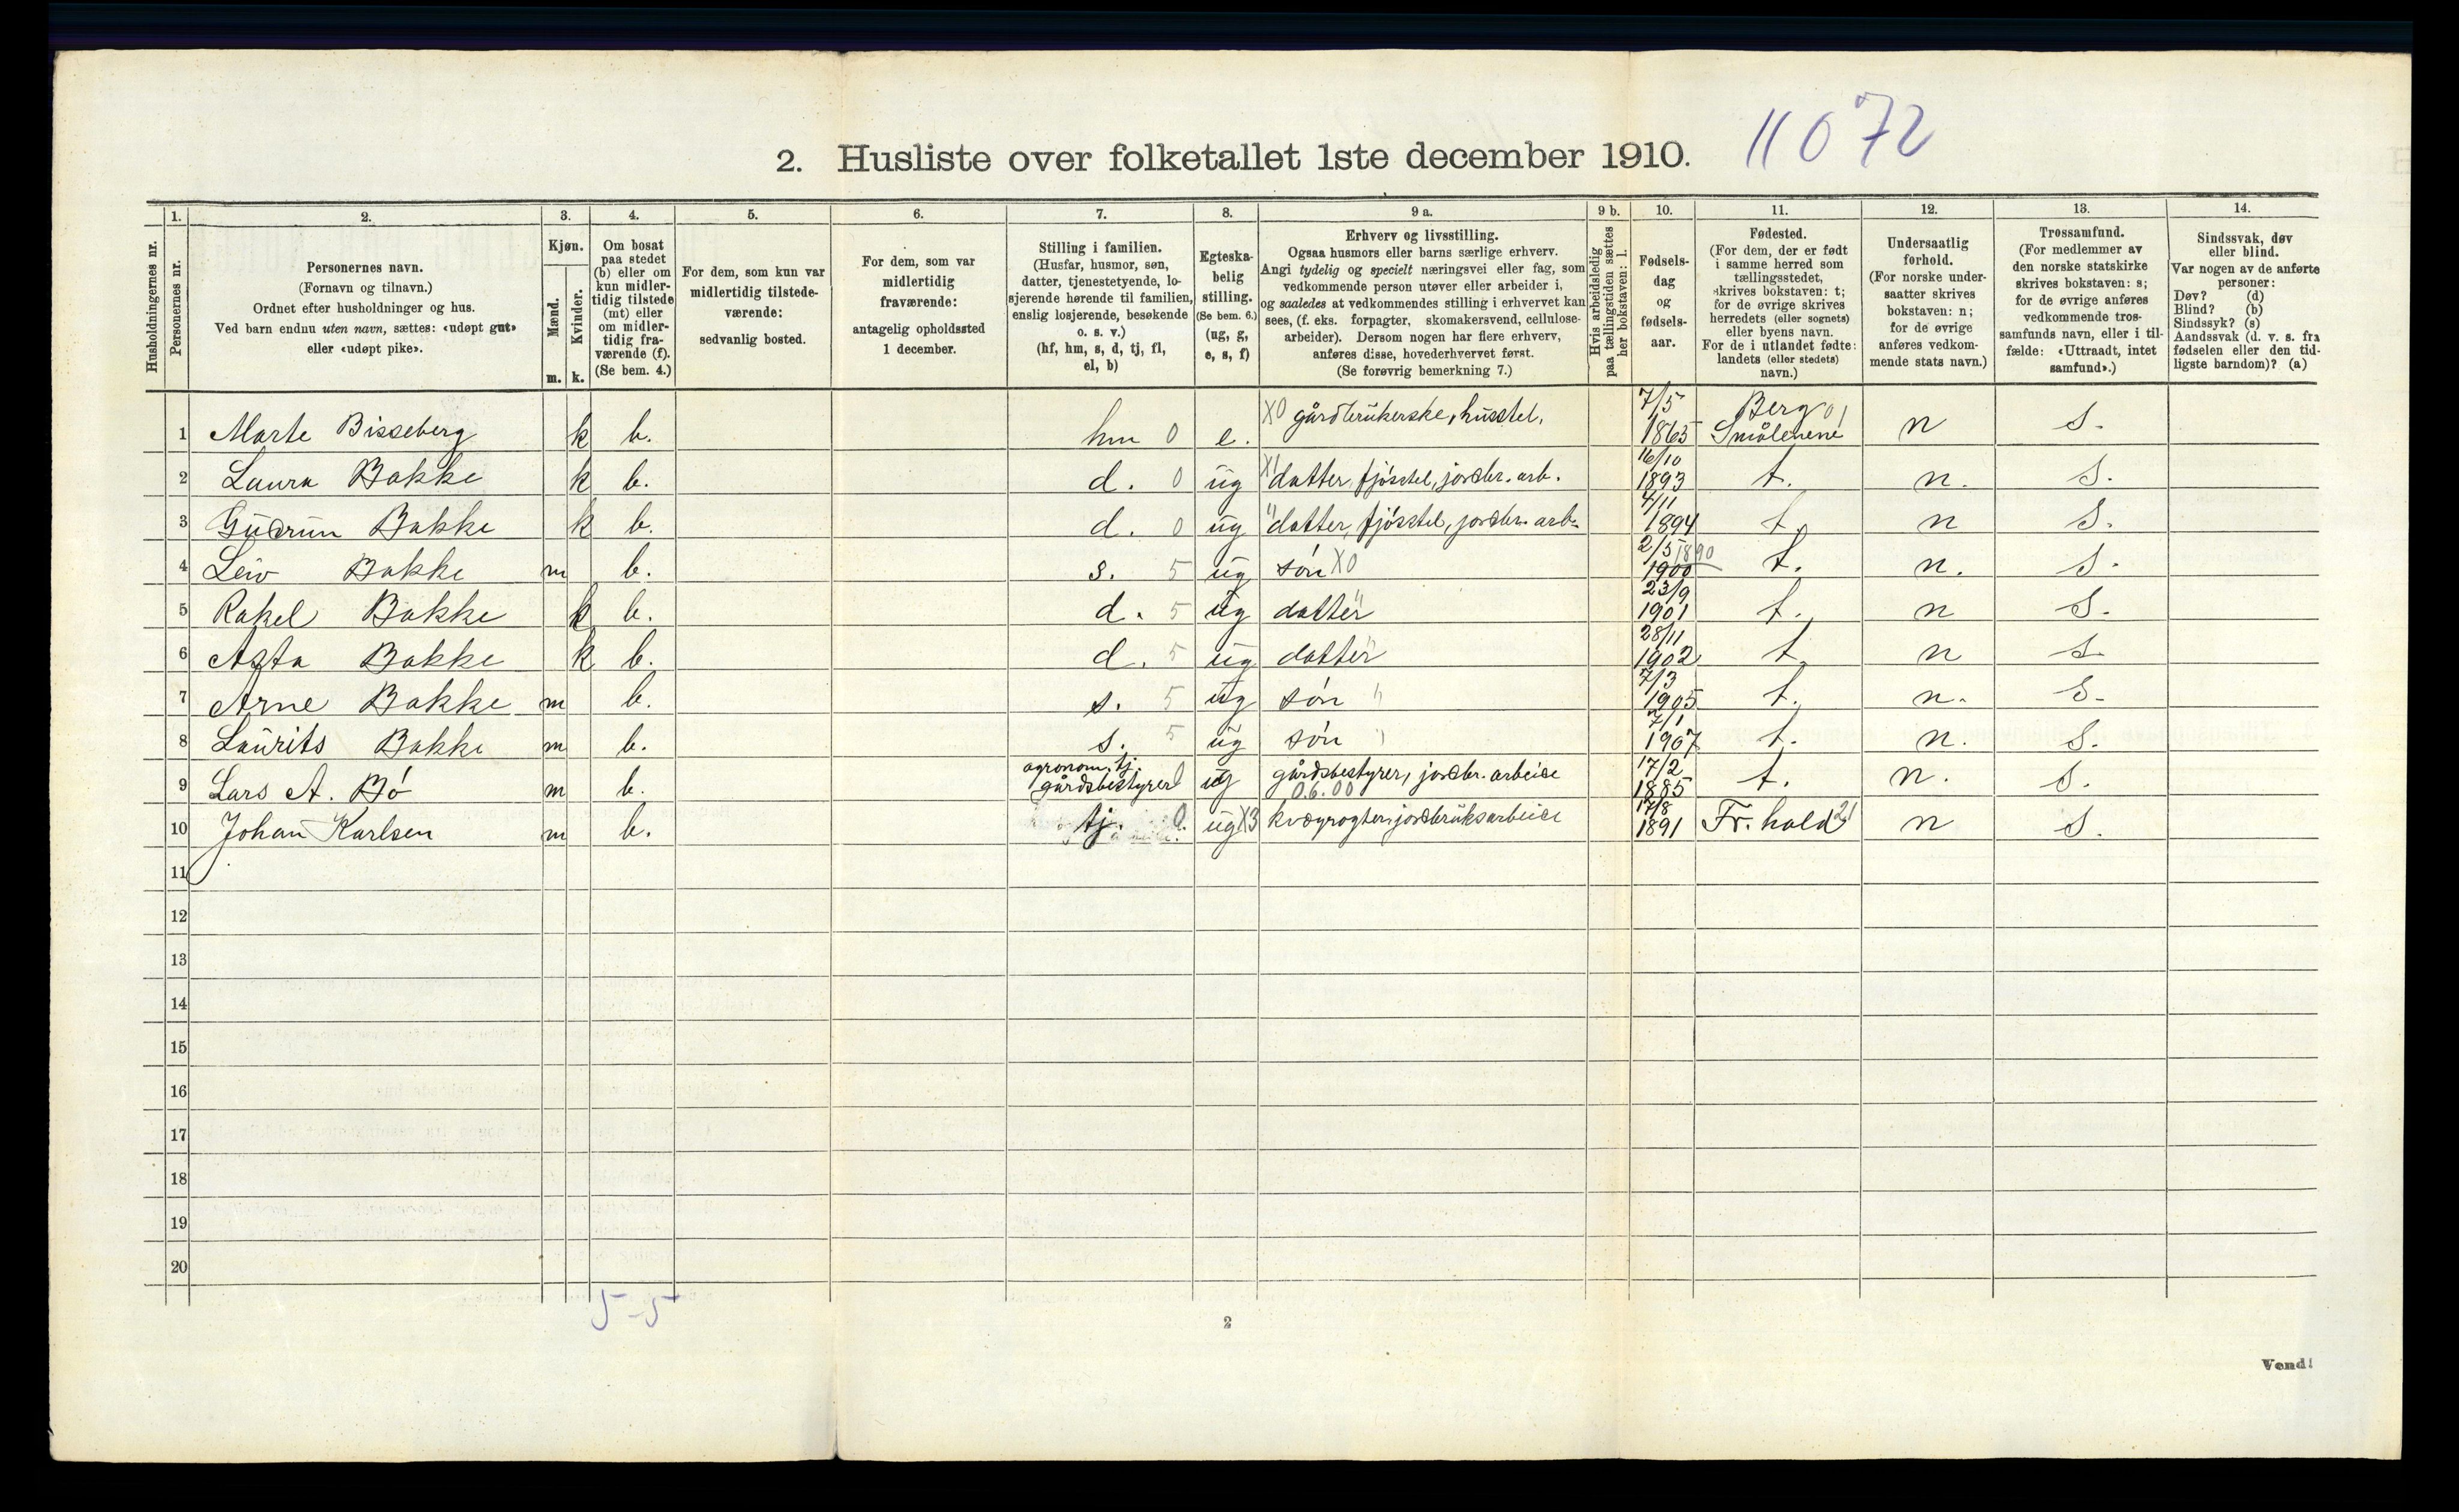 11072
2. Husliste over folketallet 1ste december 1910.
1. 2. 3. 4. 5. 6. 7. 8. 9 a. 9 b. 10. 11. 12. 13. 14.
Husholdningernes nr.
Personernes nr.
Personernes navn.
(Fornavn og tilnavn.)
Ordnet efter husholdninger og hus.
Ved barn endnu uten navn, sættes: «udøpt gut»
eller «udøpt pike».
Kjøn.
Mænd.
Kvinder.
m. k.
Om bosat
paa stedet
(b) eller om
kun midler-
tidig tilstede
(mt) eller
om midler-
tidig fra-
værende (f).
(Se bem. 4.)
For dem, som kun var
midlertidig tilstede-
værende:
sedvanlig bosted.
For dem, som var
midlertidig
fraværende:
antagelig opholdssted
1 december.
Stilling i familien.
(Husfar, husmor, søn,
datter, tjenestetyende, lo-
sjerende hørende til familien,
enslig losjerende, besøkende
o. s. v.)
(hf, hm, s, d, tj, fl,
el, b)
Egteska-
belig
stilling.
(Se bem. 6.)
(ug, g,
e, s, f)
Erhverv og livsstilling.
Ogsaa husmors eller barns særlige erhverv.
Angi tydelig og specielt næringsvei eller fag, som
vedkommende person utøver eller arbeider i,
og saaledes at vedkommendes stilling i erhvervet kan
sees, (f. eks. forpagter, skomakersvend, cellulose-
arbeider). Dersom nogen har flere erhverv,
anføres disse, hovederhvervet først.
(Se forøvrig bemerkning 7.)
Hvis arbeidsledig
paa tællingstiden sættes
her bokstaven: l.
Fødsels-
dag
og
fødsels-
aar.
Fødested.
(For dem, der er født
i samme herred som
tællingsstedet,
skrives bokstaven: t;
for de øvrige skrives
herredets (eller sognets)
eller byens navn.
For de i utlandet fødte:
landets (eller stedets)
navn.)
Undersaatlig
forhold.
(For norske under-
saatter skrives
bokstaven: n;
for de øvrige
anføres vedkom-
mende stats navn.)
Trossamfund.
(For medlemmer av
den norske statskirke
skrives bokstaven: s;
for de øvrige anføres
vedkommende tros-
samfunds navn, eller i til-
fælde: «Uttraadt, intet
samfund».)
Sindssvak, døv
eller blind.
Var nogen av de anførte
personer:
Døv? (d)
Blind? (b)
Sindssyk? (s)
Aandssvak (d. v. s. fra
fødselen eller den tid-
ligste barndom)? (a)
1 Marte Bisseberg k b. hm 0 e. X0 gårdbrukerske, husstel, 7/5 1863 Berg 01 Smålenene n s.
2 Laura Bakke k b. d. 0 ug X1 datter, fjósstel, jordbr. arb. 16/10 1893 t. n. s.
3 Gudrun Bakke k b. d. 0 ug " datter, fjósstel, jordbr. arb. 4/11 1894 t. n s.
4 Leiv Bakke m b. s. 5 ug són X0 2/5 1890 1900 t. n. s.
5 Rakel Bakke k b. d. 5 ug datter " 23/9 1901 t. n s.
6 Asta Bakke k b. d. 5 ug datter " 28/11 1902 t. n s.
7 Arne Bakke m b. s. 5 ug són " 7/3 1905 t. n. s.
8 Laurits Bakke m b. s. 5 ug són " 7/1 1907 t. n. s.
9 Lars A. Bó m b. agronom, tj. gårdsbestyrer ug gårdsbestyrer, jordbr. arbeide 0.6.00 17/2 1885 t. n. s.
10 Johan Karlsen m b. tj. 0. ug X3 kvægrøgter, jordbruksarbeide 17/8 1891 Fr. hald 21 n s.
11
12
13
14
15
16
17
18
19
20
5-5
2
Vend!